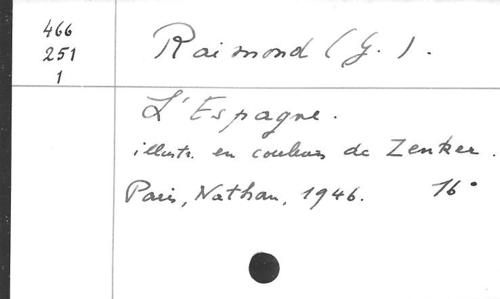 466
251
1
Raimond (G.).
L'Espagne.
illustr. en couleurs de Zenker.
Paris, Nathan, 1946. 16°